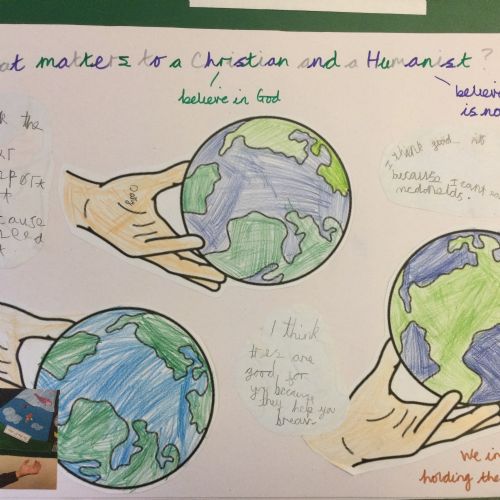 at matters to a Christian and a Humanist?
believe in God
believe
is no
the
port
cause
need
I think good
because I cant
mcdonalds.
I think
trees are
good for
you because
they help you
breath
We in
holding the